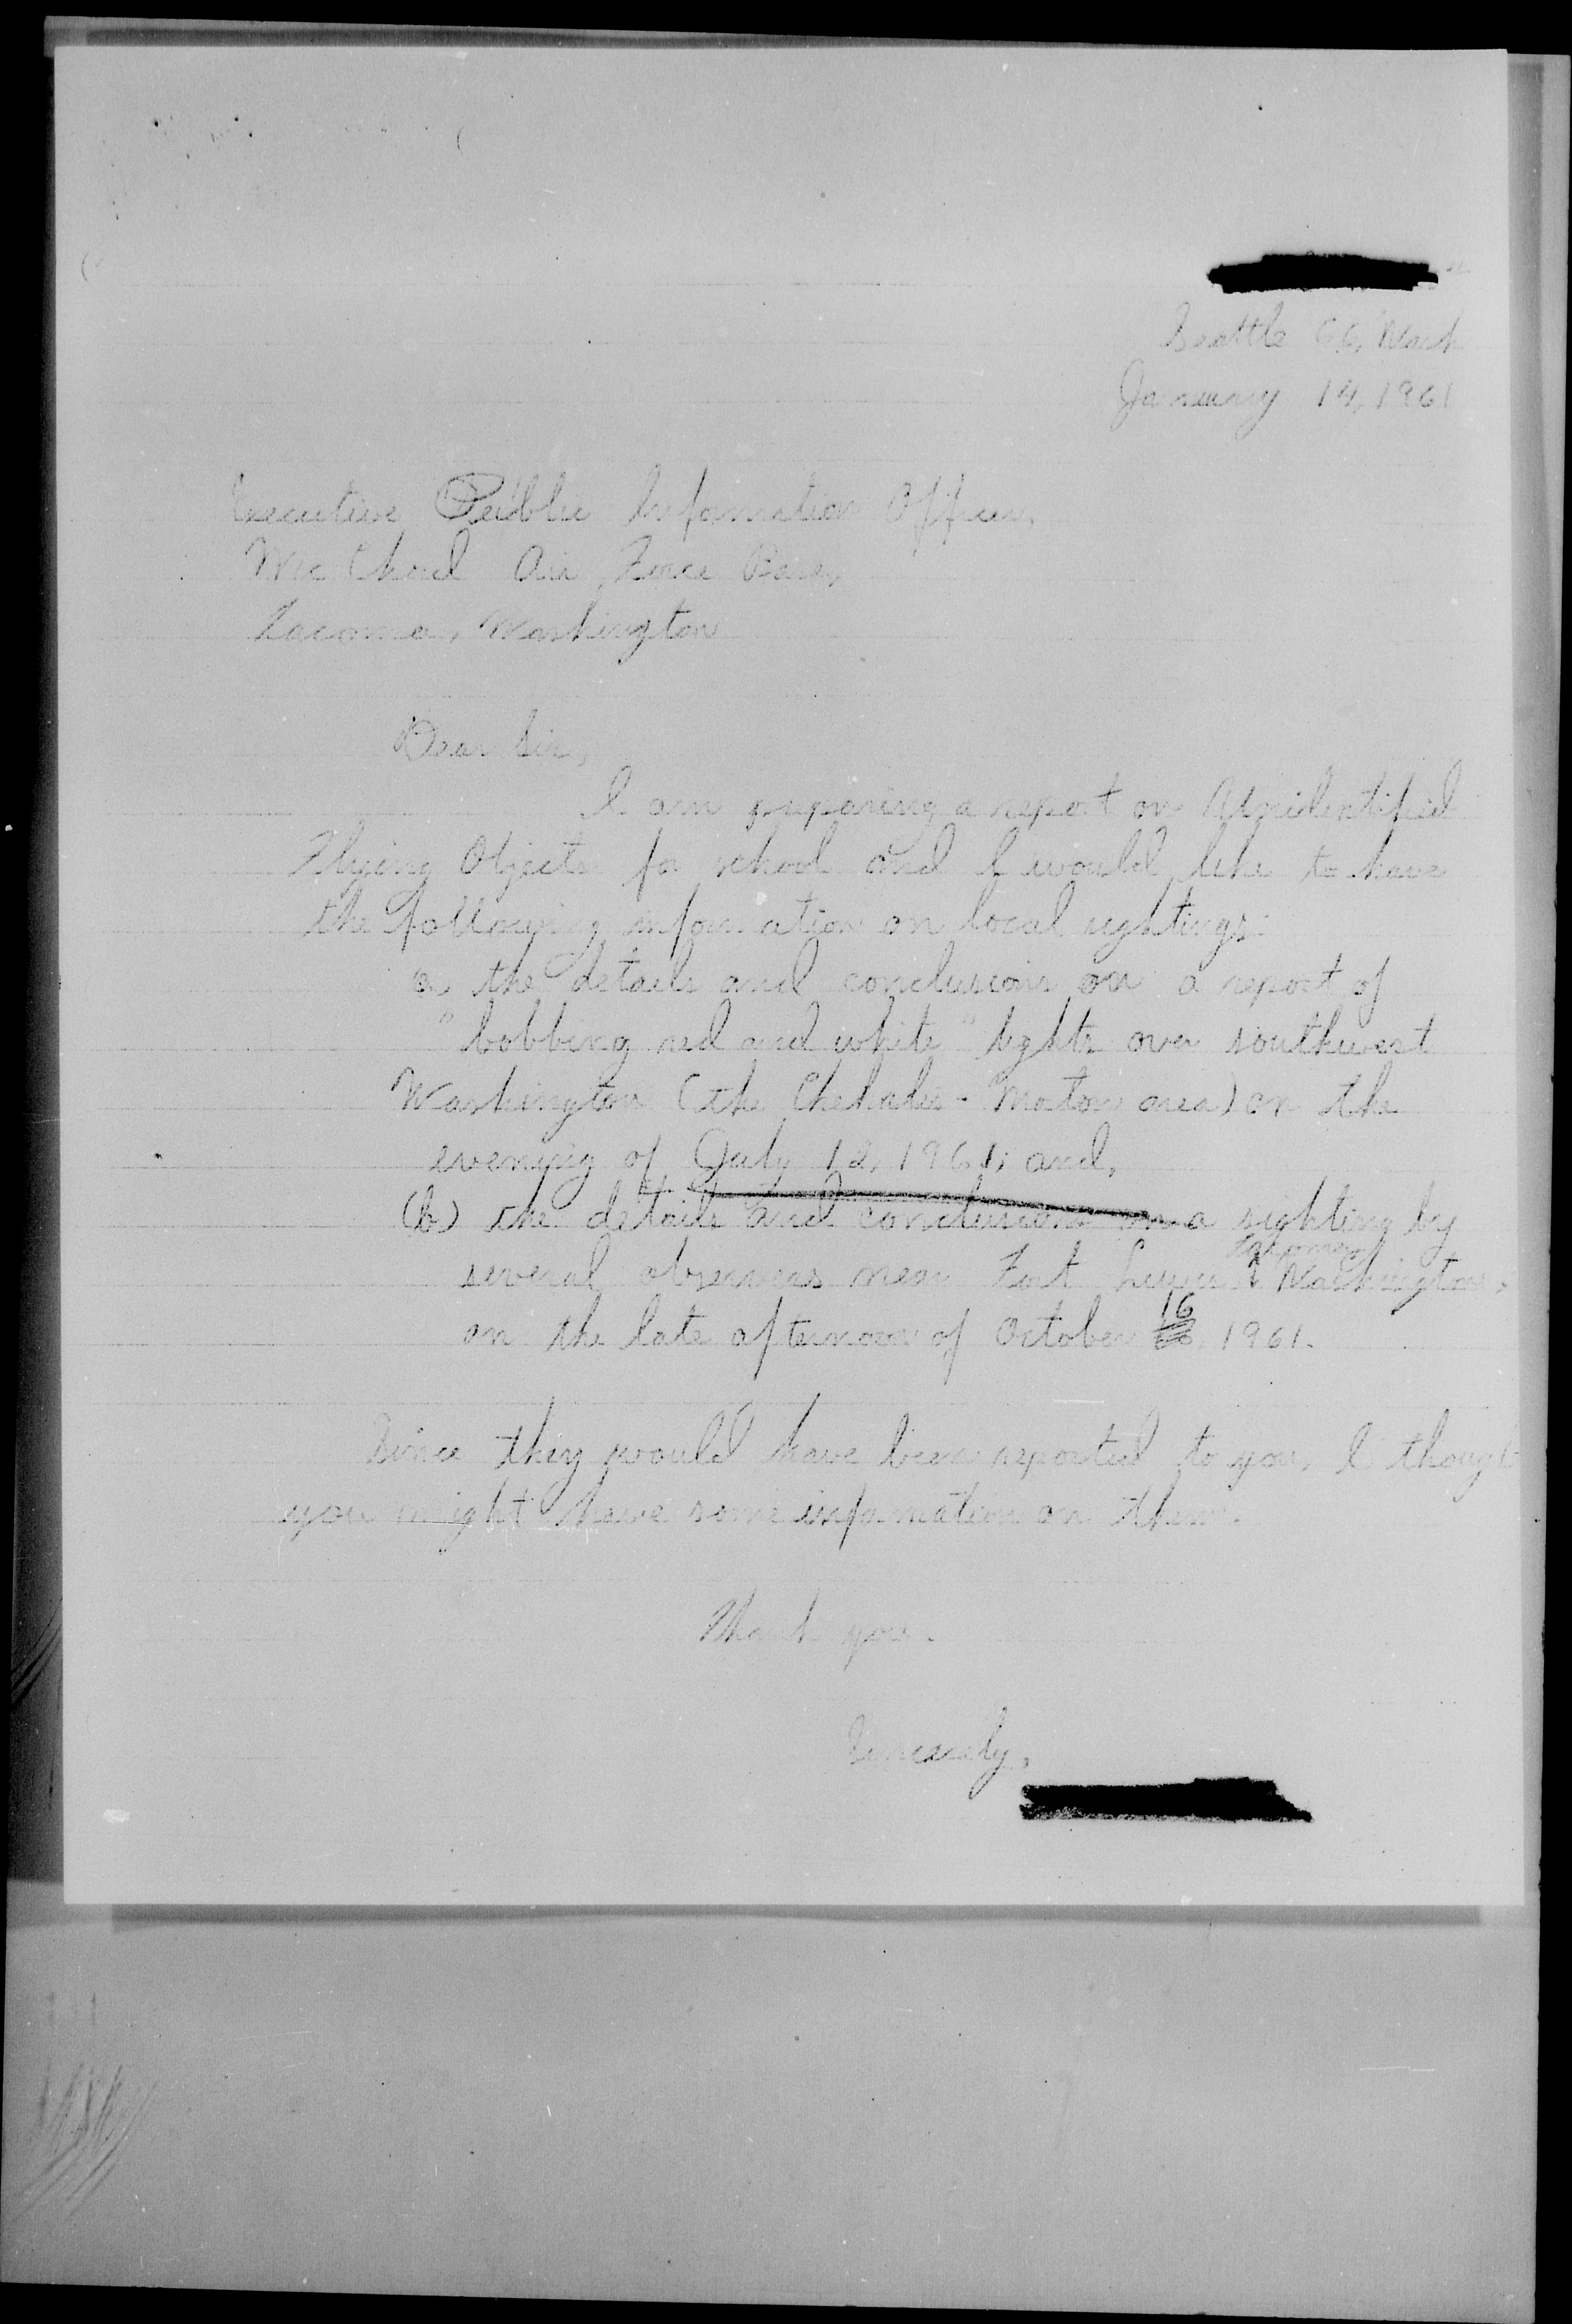 Seattle 66, Wash
January 14, 1961
Executive Public Information Officer,
McChord Air Force Base,
Tacoma, Washington
Dear Sir,
I am preparing a report on Unidentified
Flying Objects for school and I would like to have
the following information on local sightings:
a, the details and conclusions on a report of
"bobbing red and white" lights over southwest
Washington (the Chehalis - Morton area) on the
evening of July 12, 1961; and,
(b) the details and conclusions on a sighting by
several observers near Fort Lewis Tacoma, Washington,
on the late afternoon of October 16, 1961.
Since they would have been reported to you, I thought
you might have some information on them.
Thank you.
Sincerely,